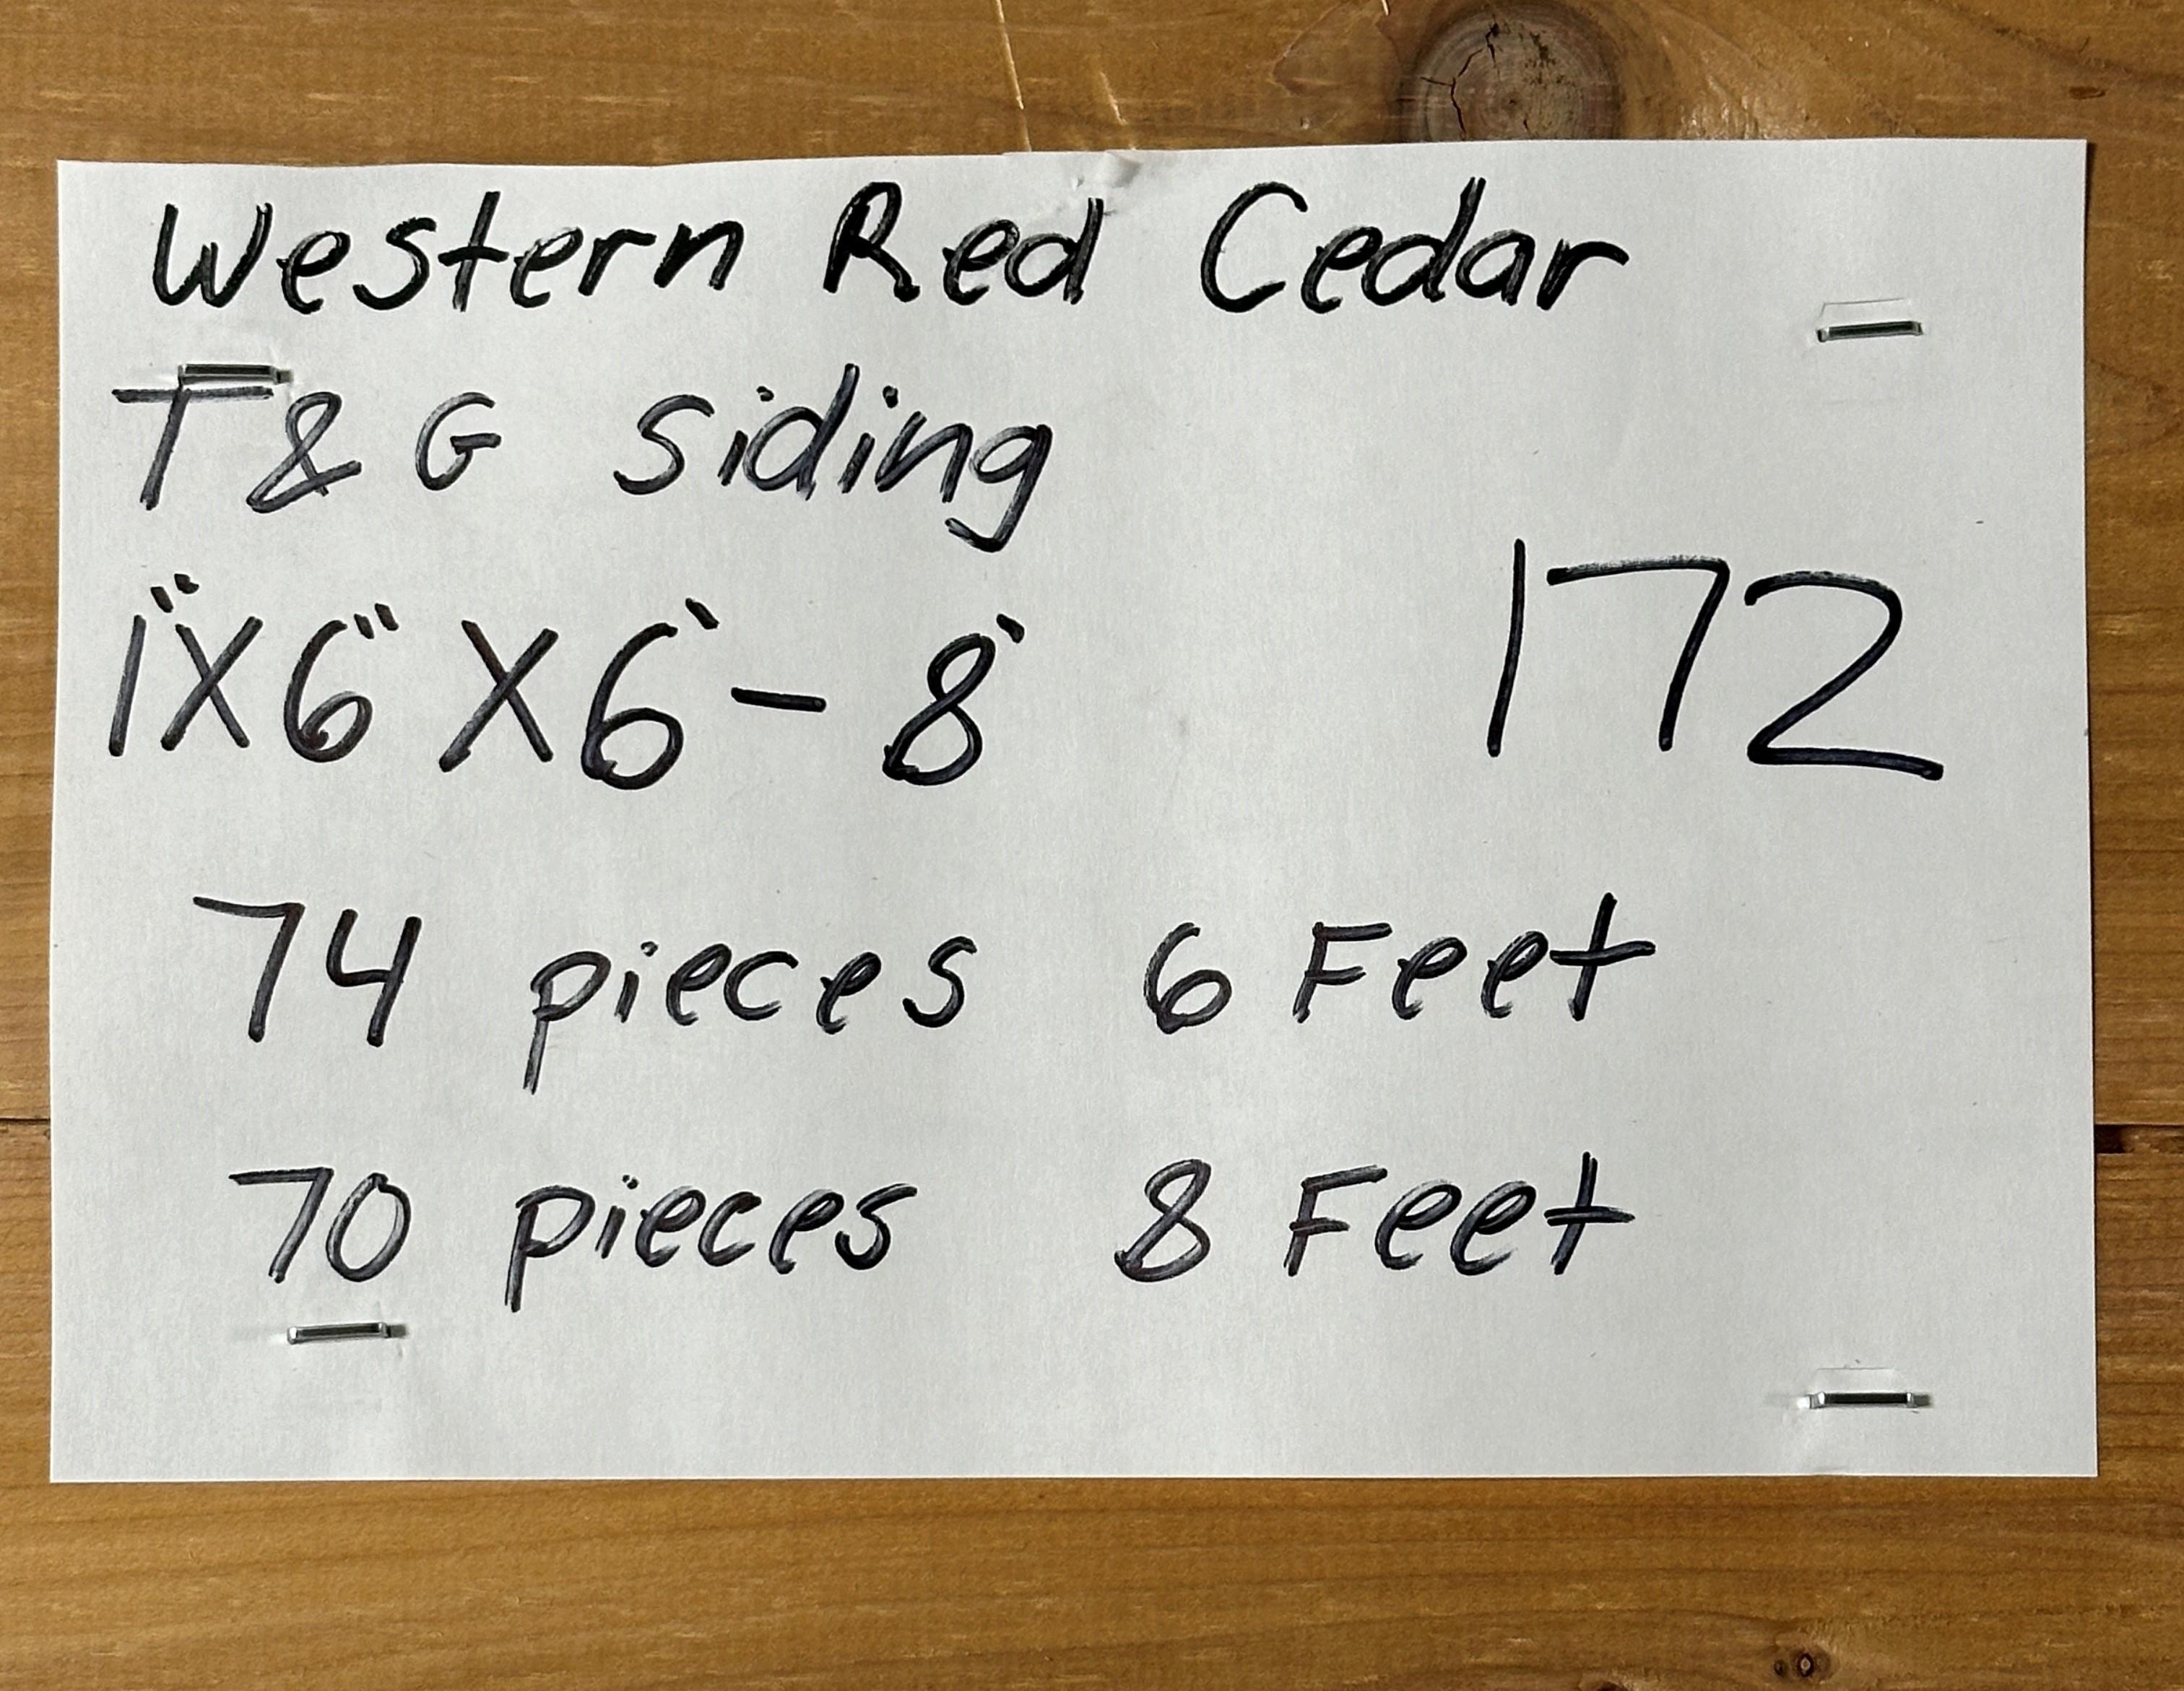 Western Red Cedar
T & G siding
1"X6"X6'-8'
172
74 pieces 6 Feet
70 pieces 8 Feet